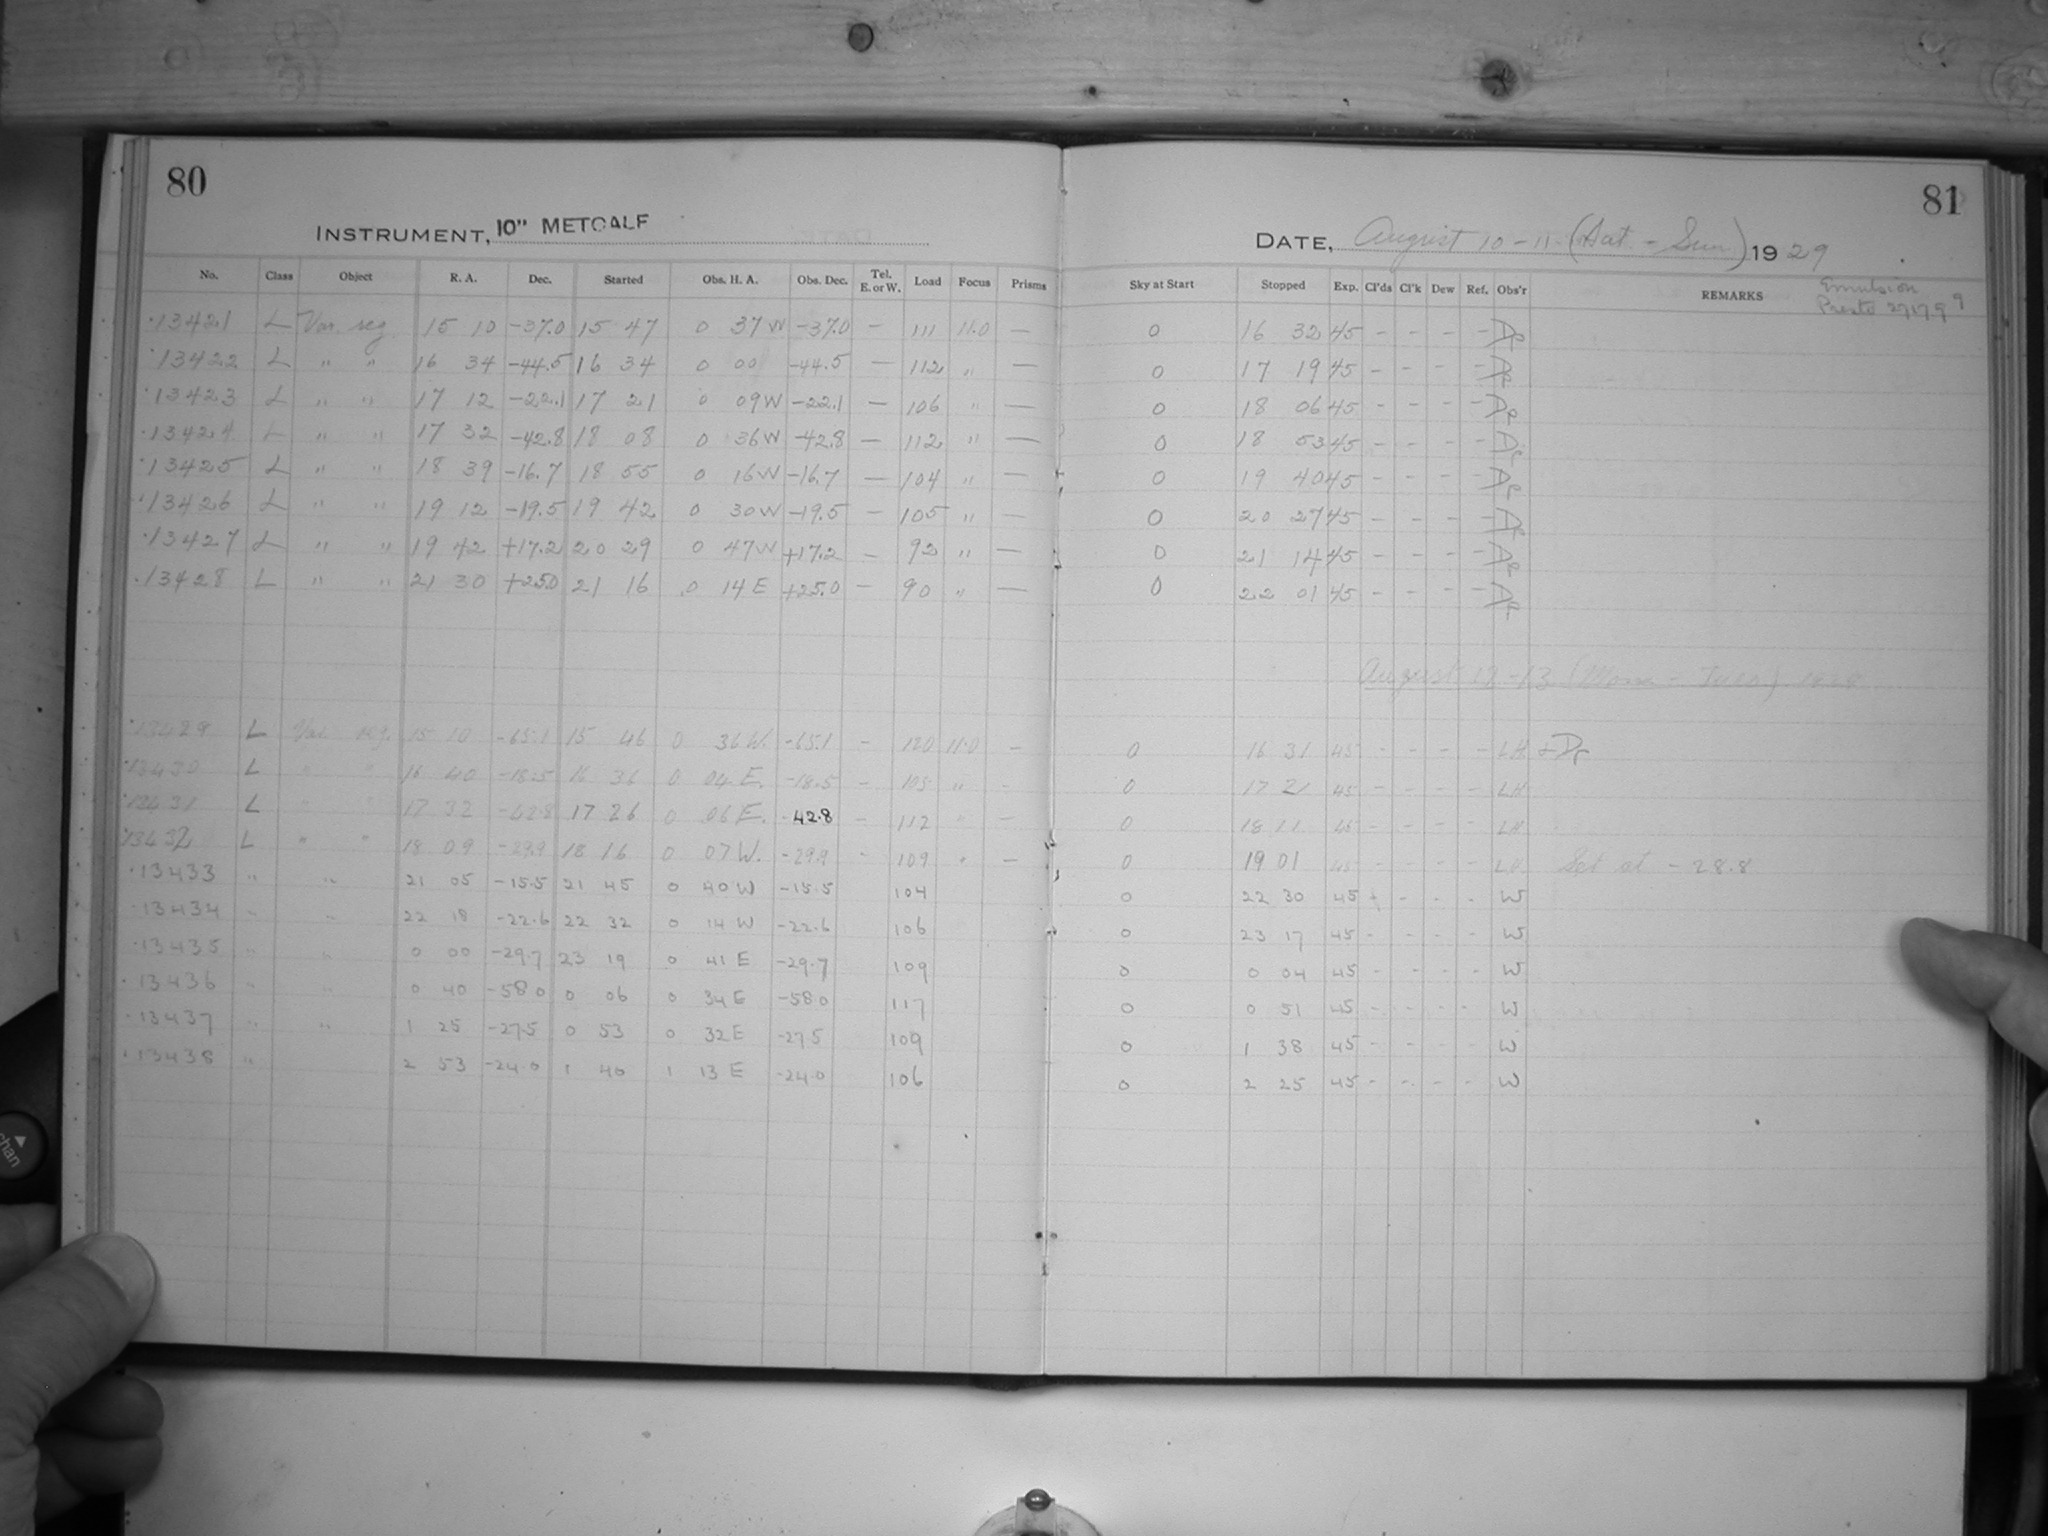 80
INSTRUMENT, 10" METCALF
No. Class Object R. A. Dec. Started Obs. H. A. Obs. Dec. Tel. E. or W. Load Focus Prisms
13421 L Var. reg. 15 10 -37.0 15 47 0 37 W -37.0 - 111 11.0 —
13422 L " " 16 34 -44.5 16 34 0 00 -44.5 — 112 " —
13423 L " " 17 12 -22.1 17 21 0 09 W -22.1 — 106 " —
13424 L " " 17 32 -42.8 18 08 0 36 W -42.8 — 112 " —
13425 L " " 18 39 -16.7 18 55 0 16 W -16.7 — 104 " —
13426 L " " 19 12 -19.5 19 42 0 30 W -19.5 - 105 " —
13427 L " " 19 42 +17.2 20 29 0 47 W +17.2 - 92 " —
13428 L " " 21 30 +25.0 21 16 0 14 E +25.0 — 90 " —
13429 L Var. reg. 15 10 -65.1 15 46 0 36 W. -65.1 - 120 11.0 -
13430 L " " 16 40 -18.5 16 36 0 04 E. -18.5 - 105 " -
13431 L " " 17 32 -42.8 17 26 0 06 E. -42.8 - 112 " -
13432 L " " 18 09 -29.9 18 16 0 07 W. -29.9 - 109 " -
13433 " " 21 05 -15.5 21 45 0 40 W -15.5 104
13434 " " 22 18 -22.6 22 32 0 14 W -22.6 106
13435 " " 0 00 -29.7 23 19 0 41 E -29.7 109
13436 " " 0 40 -58.0 0 06 0 34 E -58.0 117
13437 " " 1 25 -27.5 0 53 0 32 E -27.5 109
13438 " 2 53 -24.0 1 40 1 13 E -24.0 106
81
DATE, August 10-11 (Sat - Sun) 1929
Sky at Start Stopped Exp. Cl'ds Cl'k Dew Ref. Obs'r REMARKS
Emulsion
Presto
0 16 32 45 - - - -
0 17 19 45 - - - -
0 18 06 45 - - - -
0 18 53 45 - - - -
0 19 40 45 - - - -
0 20 27 45 - - - -
0 21 14 45 - - - -
0 22 01 45 - - - -
August 12-13 (Mon - Tues) 1929
0 16 31 45 - - - - LH
0 17 21 45 - - - - LH
0 18 11 45 - - - - LH
0 19 01 45 - - - - LH Set at -28.8
0 22 30 45 - - - - W
0 23 17 45 - - - - W
0 0 04 45 - - - - W
0 0 51 45 - - - - W
0 1 38 45 - - - - W
0 2 25 45 - - - - W
chan